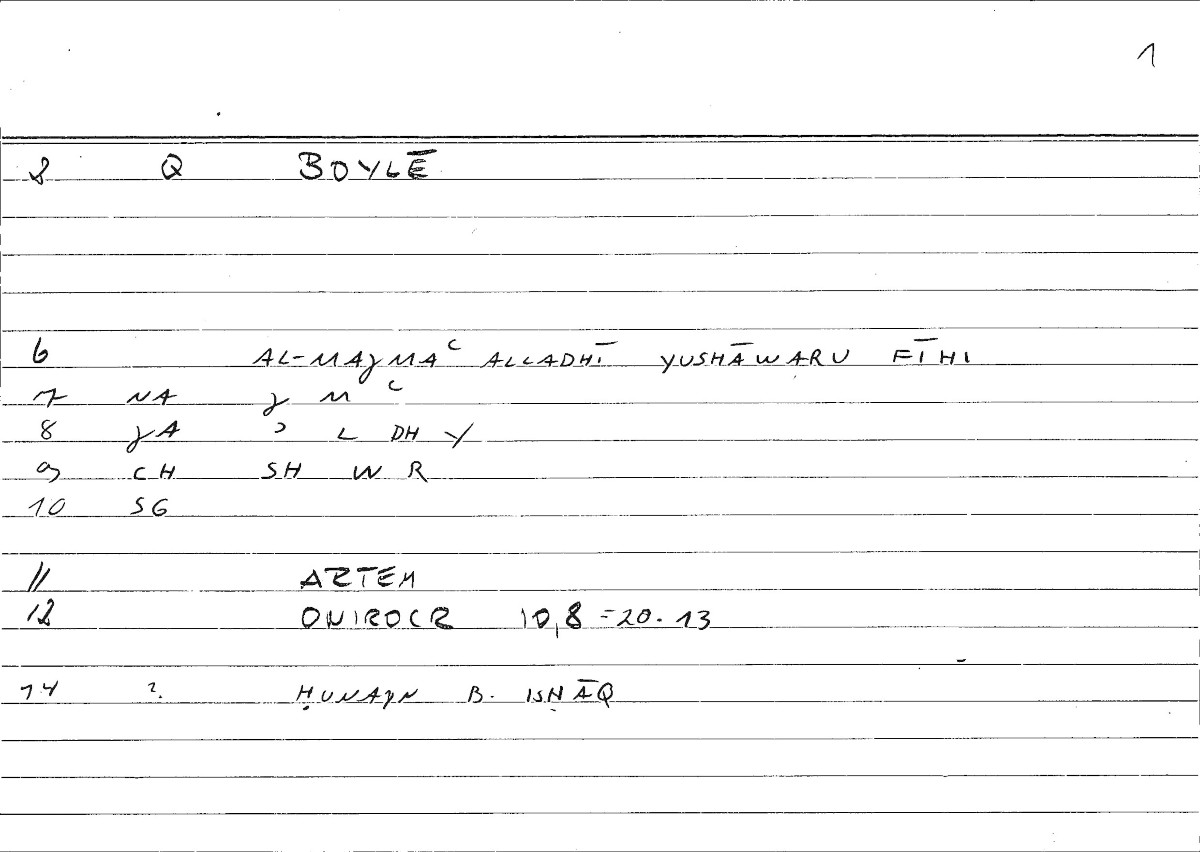 1
2 Q BOYLĒ
6 AL-MAJMAʿ ALLADHĪ YUSHĀWARU FĪHI
7 NA J M ʿ
8 JA ʾ L DH Y
9 CH SH W R
10 SG
11 ARTEM
12 ONIROCR 10,8 = 20.13
14 2. ḤUNAYN B. ISḤĀQ